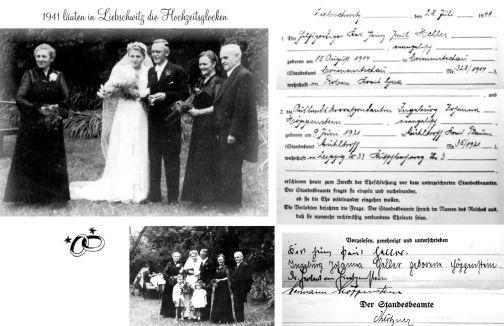 1941 läuten in Liebschwitz die Hochzeitsglocken
Liebschwitz, den 28 Juli 1941
1. Der Karl Heinz Paul Heller
evangelisch
geboren am 15. August 1914 in Crimmitschau
(Standesamt Crimmitschau Nr. 323/1914)
wohnhaft in
und
2. die Ingeburg Johanna
Höppenstein, evangelisch
geboren am 9 Juni 1921 in
(Standesamt Nr. 36/1921)
wohnhaft in Leipzig W 33 3
erschienen heute zum Zwecke der Eheschließung vor dem unterzeichneten Standesbeamten.
Der Standesbeamte fragte sie einzeln und nacheinander,
ob sie die Ehe miteinander eingehen wollen.
Die Verlobten bejahten die Frage. Der Standesbeamte sprach im Namen des Reiches aus,
daß sie nunmehr rechtmäßig verbundene Eheleute seien.
Vorgelesen, genehmigt und unterschrieben
Karl Heinz Paul Heller
Ingeburg Johanna Heller geborene Höppenstein
Hermann Höppenstein
Der Standesbeamte